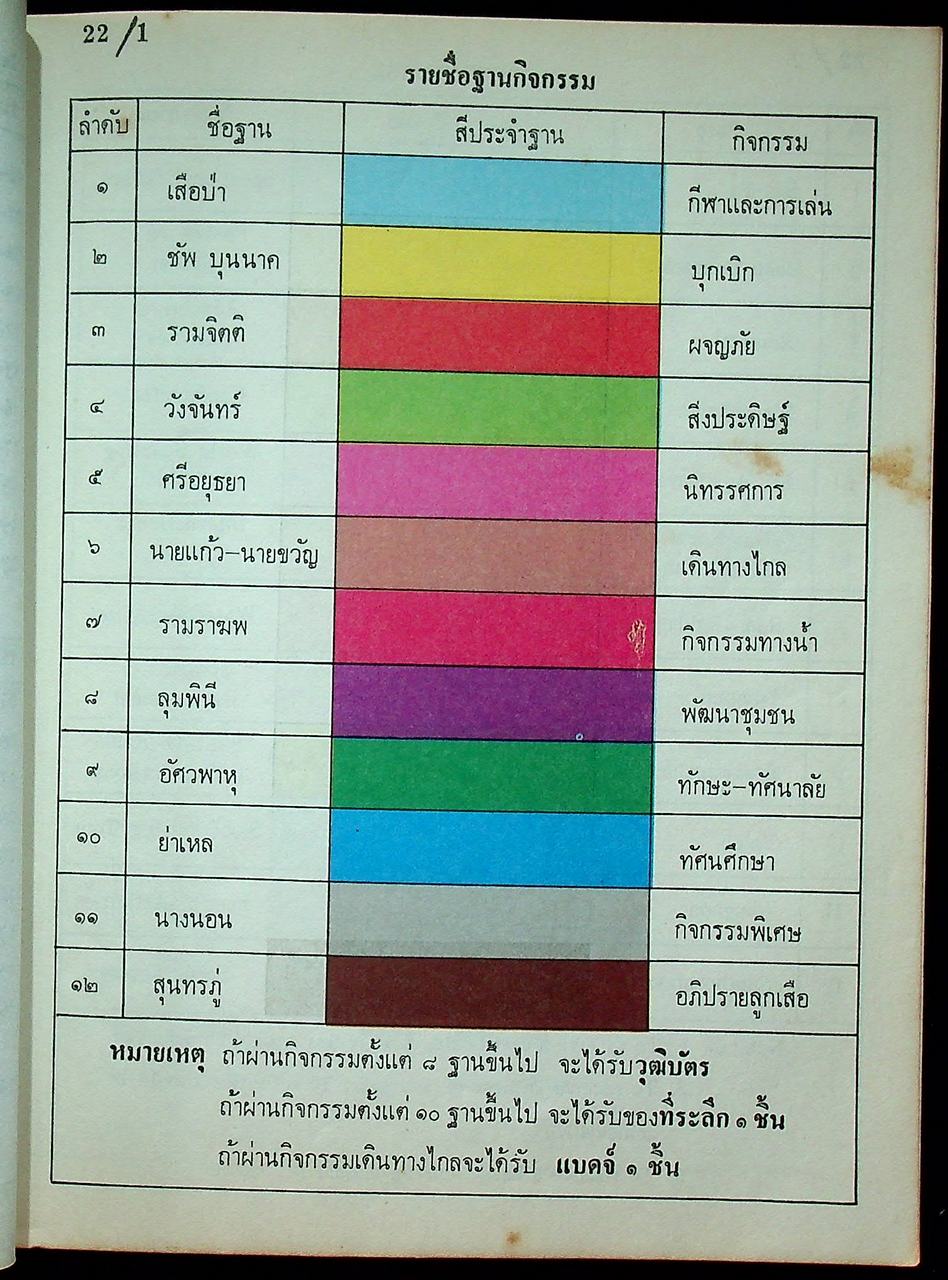 22/1
รายชื่อฐานกิจกรรม
ลำดับ ชื่อฐาน สีประจำฐาน กิจกรรม
๑ เสือป่า กีฬาและการเล่น
๒ ชัพ บุนนาค บุกเบิก
๓ รามจิตติ ผจญภัย
๔ วังจันทร์ สิ่งประดิษฐ์
๕ ศรีอยุธยา นิทรรศการ
๖ นายแก้ว-นายขวัญ เดินทางไกล
๗ รามราฆพ กิจกรรมทางน้ำ
๘ ลุมพินี พัฒนาชุมชน
๙ อัศวพาหุ ทักษะ-ทัศนาลัย
๑๐ ย่าเหล ทัศนศึกษา
๑๑ นางนอน กิจกรรมพิเศษ
๑๒ สุนทรภู่ อภิปรายลูกเสือ
หมายเหตุ ถ้าผ่านกิจกรรมตั้งแต่ ๘ ฐานขึ้นไป จะได้รับวุฒิบัตร
ถ้าผ่านกิจกรรมตั้งแต่ ๑๐ ฐานขึ้นไป จะได้รับของที่ระลึก ๑ ชิ้น
ถ้าผ่านกิจกรรมเดินทางไกลจะได้รับ แบดจ์ ๑ ชิ้น